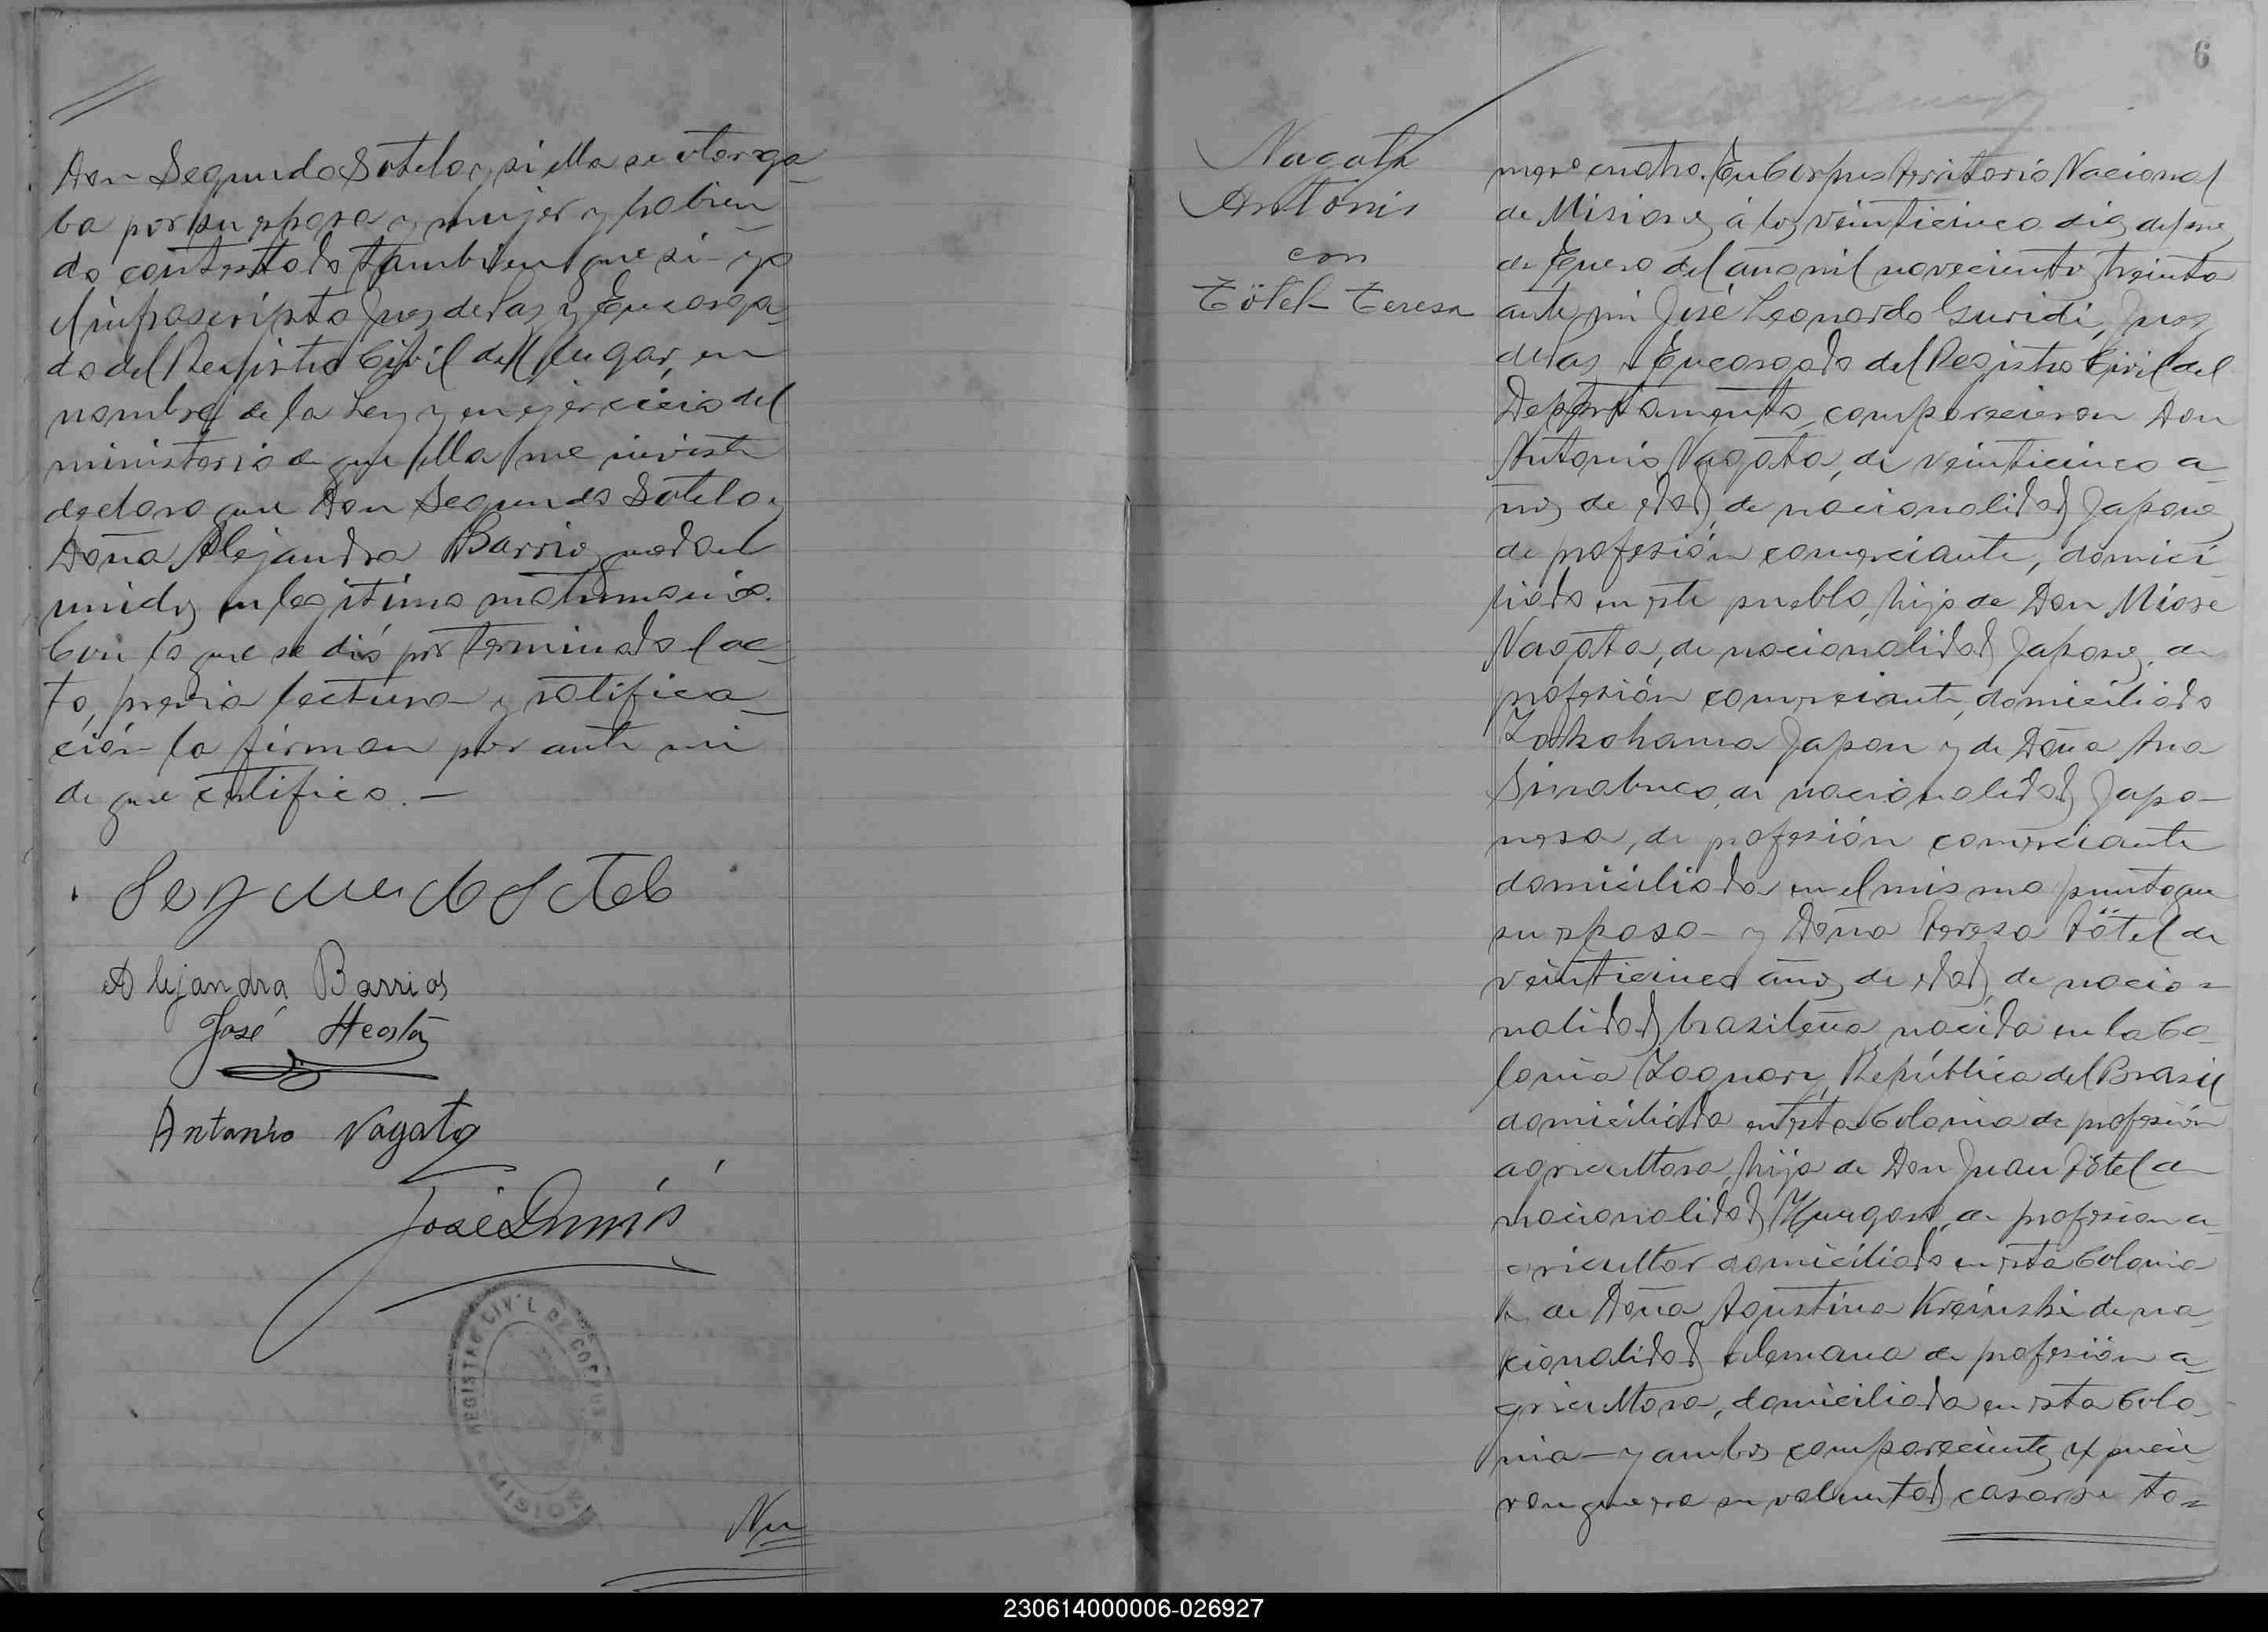 Don Segundo Sotelo y si ella se otorga-
ba por su esposa y mujer y habien-
do contestado tambien que si - yo
el infrascripto Juez de Paz y Encarga-
do del Registro Civil del lugar, en
nombre de la Ley y en ejercicio del
ministerio de que ella me inviste
declaro que Don Segundo Sotelo y
Doña Alejandra Barrios quedan
unidos en legitimo matrimonio.
Con lo que se dió por terminado el ac-
to, previa lectura y ratifica-
ción la firman por ante mi
de que certifico. -
Segundo Sotelo
Alejandra Barrios
José Acosta
Antonio Nagata
José
REGISTRO CIVIL DE CORPUS
MISIONES
Nu
6
Nagata
Antonio
con
Tötel Teresa
mero cuatro. En Corpus Territorio Nacional
de Misiones á los veinticinco dias del mes
de Enero del año mil novecientos treinta
ante mi José Leonardo Guridi, Juez
de Paz y Encargado del Registro Civil del
Departamento, comparecieron Don
Antonio Nagata, de veinticinco a-
ños de edad, de nacionalidad Japones
de profesión comerciante, domici-
liado en este pueblo, hijo de Don Miose
Nagata, de nacionalidad Japones, de
profesión comerciante, domiciliado
Yokohama Japon y de Doña Ana
de nacionalidad Japo-
nesa, de profesión comerciante
domiciliada en el mismo punto que
su esposo - y Doña Teresa Tötel de
veinticinco años de edad, de nacio-
nalidad brasileña, nacida en la Co-
lonia Yaguary, República del Brasil
domiciliada en esta Colonia de profesión
agricultora, hija de Don Juan Tötel de
nacionalidad Hungaro, de profesion a-
gricultor domiciliado en esta Colonia
y de Doña Agustina Kreinski de na-
cionalidad alemana de profesión a-
gricultora, domiciliada en esta Colo-
nia - y ambos comparecientes expusie-
ron que era su voluntad casarse to-
230614000006-026927